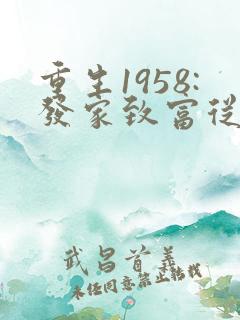 重生1958:
發家致富從
武昌首義
未任同意禁止轉載